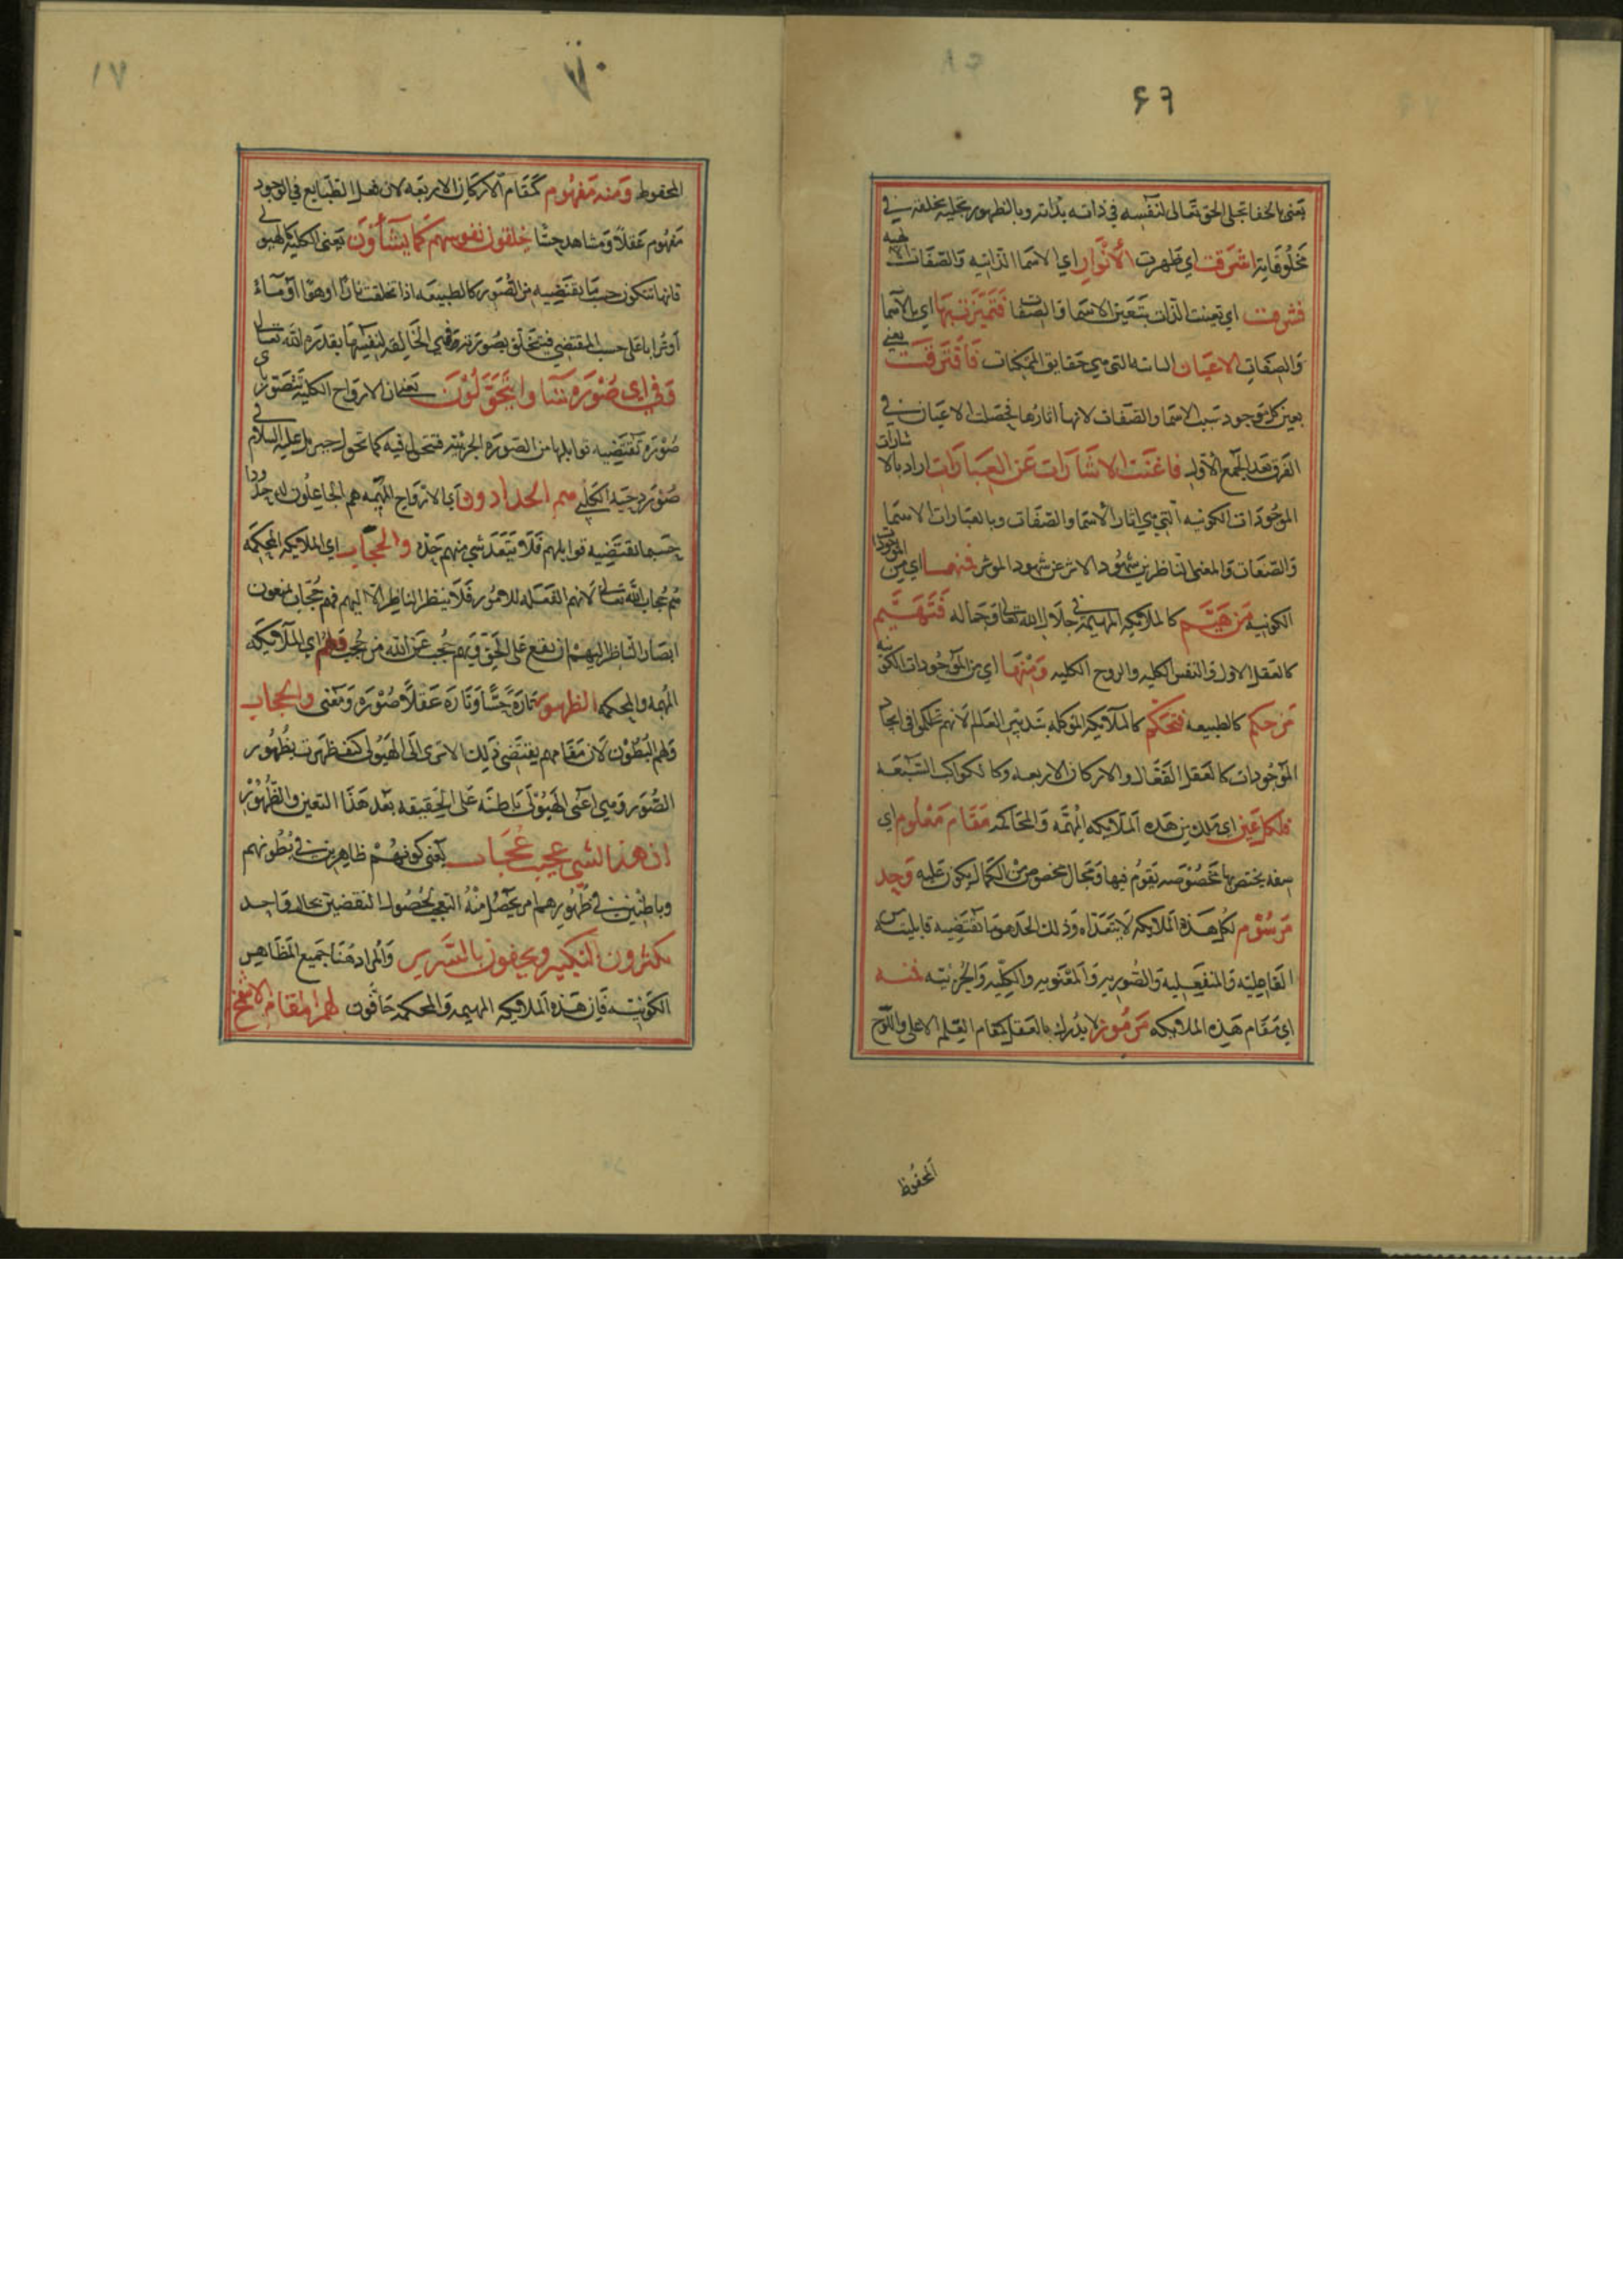 ٦٩
يعني بالخفا تجلي الحق تعالى لنفسه في ذاته بذاته وبالظهور تجليه بخلقه في
مخلوقاته اشرقت اي ظهرت الأنوار اي الاسما الذاتيه والصفات الالهيه
فشرقت اي تعينت الذات بتعين الاسما والصفات فتميزت بها اي بالاسما
والصفات الاعيان التي هي حقايق الممكنات فافترقت يعني
بعين كل موجود بسبب الاسما والصفات لانها اثارها فحصلت الاعيان في
الفرق بعد الجمع الاول فاغنت الاشارات عن العبارات اراد بالاشارات
الموجودات الكونيه التي هي اثار الاسما والصفات وبالعبارات الاسما
والصفات والمعنى الناظرين شهود الاثر عن شهود الموثر فمنها اي من الموجودات
الكونيه من هيم كالملائيكه المهيمة في جلال الله تعالى وجماله فتهيم
كالعقل الاول والنفس الكليه والروح الكليه ومنها اي من الموجودات الكونيه
من حكم كالطبيعه فتحكم كالملائيكه الموكله بتدبير العالم لانهم تحكموا في ايجاد
الموجودات كالعقل الفعال والاركان الاربعه وكالكواكب السبعه
فلكل عين اي ملك من هذه الملائيكه المهيمه والحاكمه مقام معلوم اي
صفه يختص بها مخصوصه تقوم فيها ومجال مخصوص من الكمال يكون عليه وحد
مرسوم لكل هذه الملائيكه لا يتعداه وذلك الحد هو ما تقتضيه قابليته من
الفاعليه والمنفعليه والصوريه والمعنويه والكليه والجزئيه فمنه
اي مقام هذه الملائيكه مرموز لا يدرك بالعقل كمقام القلم الاعلى واللوح
المحفوظ
٧٠
المحفوظ ومنه مفهوم كمقام الاركان الاربعه لان فعل الطبايع في الوجود
مفهوم عقلا ومشاهد حسا خلقون نفوسهم كما يشأون يعني الكليه كالهيولي
فانها تتكون حسب ما يقتضيه من الصور كالطبيعه اذا تخلقت نارا او هوا او ماء
او ترابا على حسب المقتضي فيتخلق بصورته وهي الخالقه لنفسها بقدرة الله تعالى
وفي اي صورة شاوا يتحولون يعني ان الارواح الكليه تتصور باي
صورة تقتضيه قوابلها من الصورة الجزئيه فتتحول فيه كما تحول جبريل عليه السلام في
صورة دحيه الكلبي هم الحدادون اي الارواح المهيمه هم الجاعلون لله حدودا
حسبما تقتضيه قوابلهم فلا يتعد شي منهم حده والحجاب اي الملائيكه المحكمه
هم حجاب الله تعالى لانهم الفعله للامور فلا ينظر الناظر الا اليهم فهم حجاب يمنعون
ابصار الناظر اليهم ان تقع على الحق فهم حجب عن الله من حجب فلهم اي الملائيكه
المهيمه والمحكمه الظهور تارة حسا وتارة عقلا صورة ومعنى والحجاب
ولهم البطون لان مقامهم يقتضي ذلك الا ترى الى الهيولي كيف ظهرت بظهور
الصور وهي اعني الهيولى باطنه على الحقيقه بعد هذا التعين والظهور
ان هذا لشي عجيب عجاب يعني كونهم ظاهرين في بطونهم
وباطنين في ظهورهم امر يحصل منه التعجب لحصول النقضين بحال واحد
يكثرون التكبير ويحفون بالسرير والمراد هنا جميع المظاهر
الكونيه فان هذه الملائيكه المهيمه والمحكمه حافون لهم المقام الاشمخ